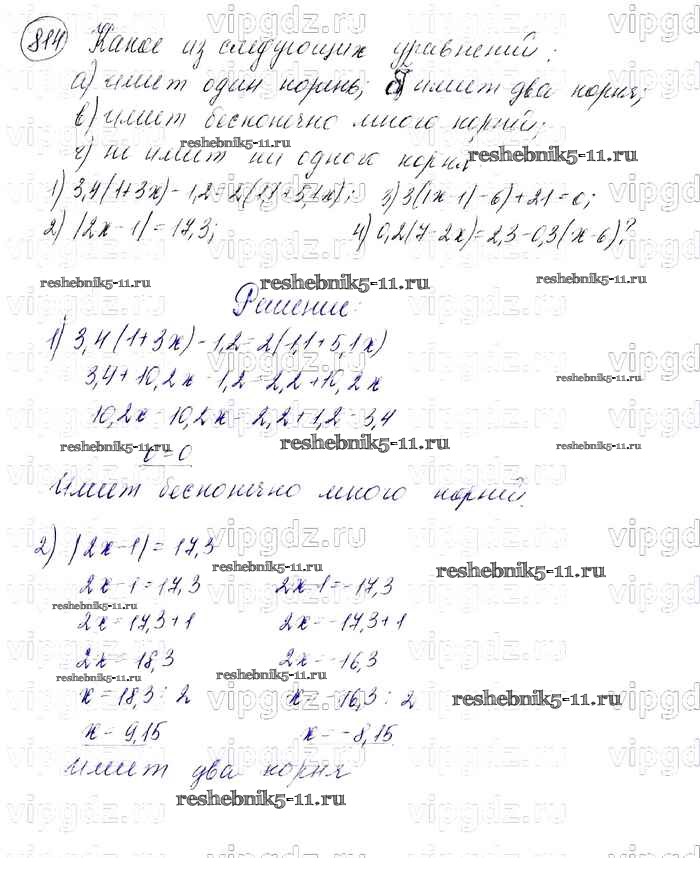 814 Какое из следующих уравнений:
а) имеет один корень; б) имеет два корня;
в) имеет бесконечно много корней;
г) не имеет ни одного корня
1) 3,4(1+3x)-1,2=2(1,1+5,1x); 3) 3(|x-1|-6)+21=0;
2) |2x-1|=17,3; 4) 0,2(7-2x)=2,3-0,3(x-6)?
Решение:
1) 3,4(1+3x)-1,2=2(1,1+5,1x)
3,4+10,2x-1,2=2,2+10,2x
10,2x-10,2x=2,2+1,2-3,4
0=0
Имеет бесконечно много корней.
2) |2x-1|=17,3
2x-1=17,3 2x-1=-17,3
2x=17,3+1 2x=-17,3+1
2x=18,3 2x=-16,3
x=18,3:2 x=-16,3:2
x=9,15 x=-8,15
Имеет два корня
vipgdz.ru
reshebnik5-11.ru